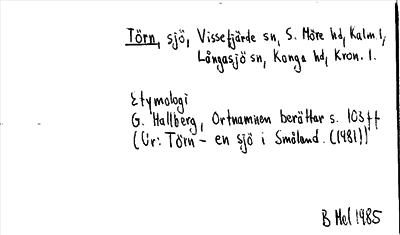 Törn, sjö, Vissefjärde sn, S. Möre hd, Kalm. l,
Långasjö sn, Konga hd, Kron. l.
Etymologi
G. Hallberg, Ortnamnen berättar s. 103 ff
(Ur: Törn – en sjö i Småland. (1981))
B Hel 1985